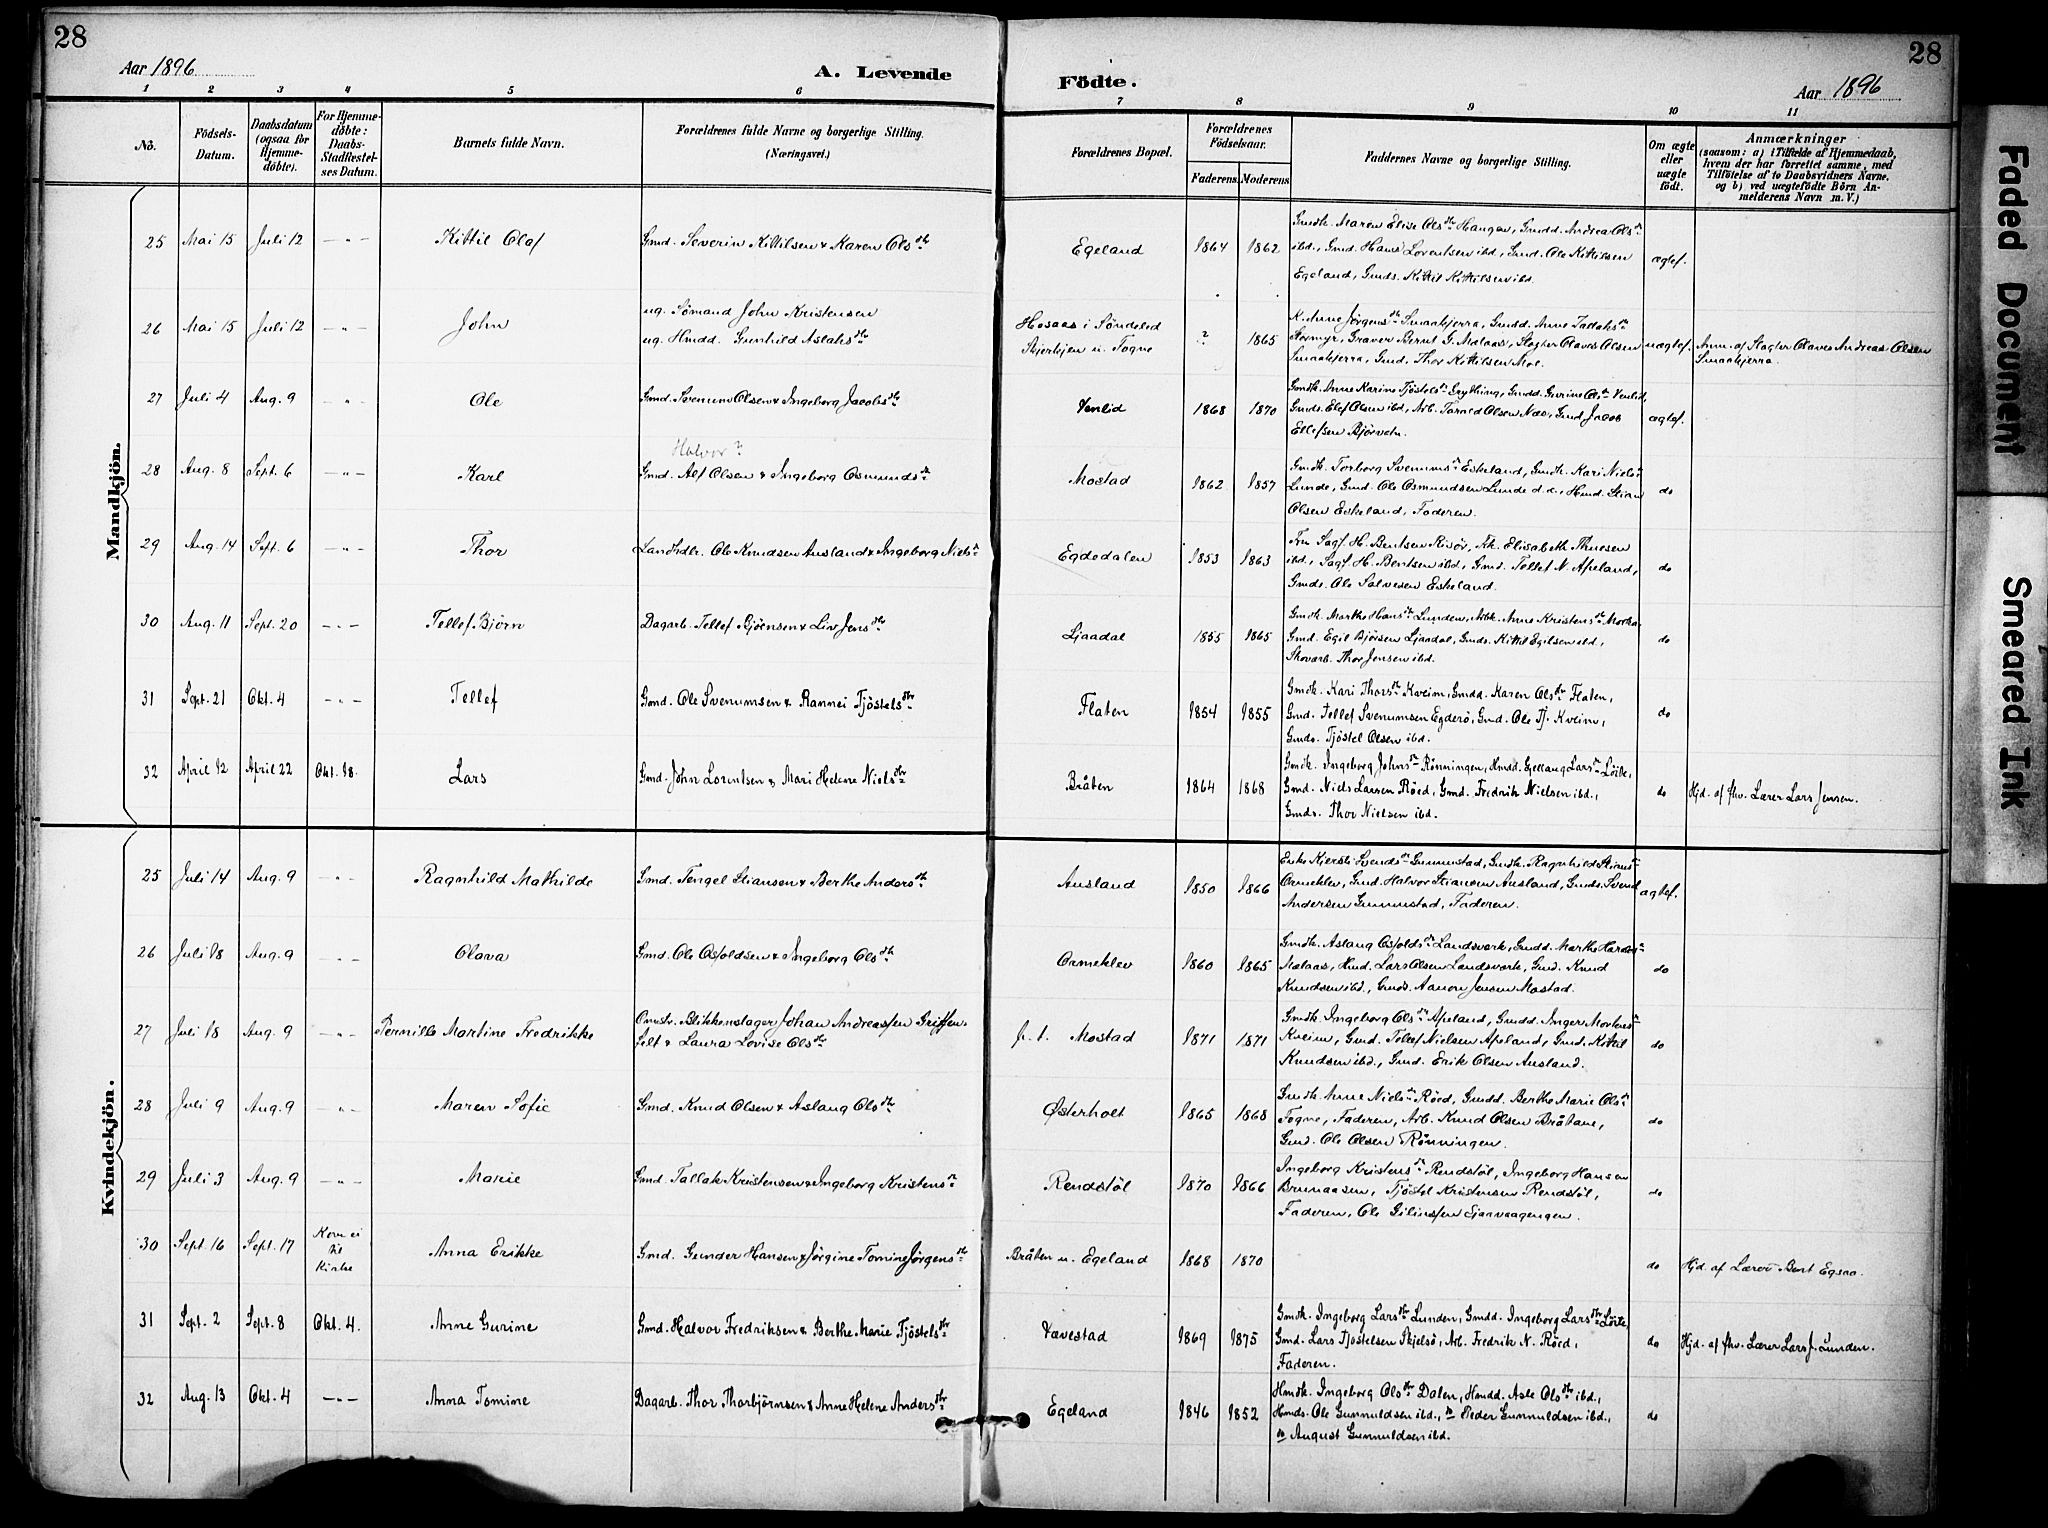 28
Aar 1896
A. Levende
Födte.
Aar 1896
28
1 2 3 4 5 6 7 8 9 10 11
No.
Födsels-Datum.
Daabsdatum (ogsaa for Hjemme-döbte).
For Hjemme-döbte: Daabs-Stadfestel-ses Datum.
Barnets fulde Navn.
Forældrenes fulde Navne og borgerlige Stilling.
(Næringsvei.)
Forældrenes Bopæl.
Forældrenes Födselsaar.
Faderens. Moderens.
Faddernes Navne og borgerlige Stilling.
Om ægte eller uægte födt.
Anmærkninger
(saasom: a) i Tilfælde af Hjemmedaab,
hvem der har forrettet samme, med
Tilföielse af to Daabsvidners Navne.
og b) ved uægtefödte Börn An-
melderens Navn m. V.)
Mandkjön.
25 Mai 15 Juli 12 -"- Kittil Olaf Gmd. Severin Kittilsen & Karen Olsdtr Egeland 1864 1862 Gmdk. Maren Elise Olsdtr Haugen, Gmdd. Andrea Olsdtr
ibd., Gmd. Hans Lorentsen ibd., Gmd. Ole Kittilsen
Egeland, Gmds. Kittil Kittilsen ibd. ægtef.
26 Mai 15 Juli 12 -"- John ug. Sömand John Kristensen
ug. Hmdd. Gunhild Aslaksdtr i Söndeled
u. Togne ? 1865 K. Anne Jörgensdtr Smaakjerra, Gmdd. Anne
Stormyr, Graver Bernt G. Mölaas, Slagter Olaves Olsen
Smaakjerra, Gmd. Thor Kittilsen Moe. uægtef. Anm. af Slagter Olaves Andreas Olsen
Smaakjerra.
27 Juli 4 Aug. 9 -"- Ole Gmd. Svenum Olsen & Ingeborg Jacobsdtr Venlid 1868 1870 Gmdk. Anne Karine Tjöstelsdtr Grytting, Gmdd. Gurine Olsdtr Venlid,
Gmds. Elef Olsen ibd., Arb. Tarald Olsen Næs, Gmd. Jacob
Ellefsen Björvatn. ægtef.
Halvor?
28 Aug. 8 Sept. 6 -"- Karl Gmd. Alf Olsen & Ingeborg Osmundsdtr Mostad 1862 1857 Gmdk. Torborg Svenumsdtr Eskeland, Gmdk. Kari Nielsdtr
Lunde, Gmd. Ole Osmundsen Lunde d.e., Hmd. Stian
Olsen Eskeland, Faderen. do
29 Aug. 14 Sept. 6 -"- Thor Landhdlr. Ole Knudsen Ausland & Ingeborg Nielsdtr Egdedalen 1853 1863 Fru Sagf. H. Bentsen Risör, Frk. Elisabeth Thuesen
ibd., Sagf. H. Bentsen ibd., Gmd. Tellef N. Apeland,
Gmds. Ole Salvesen Eskeland. do
30 Aug. 11 Sept. 20 -"- Tellef Björn Dagarb. Tellef Björnsen & Liv Jensdtr Ljaadal 1855 1865 Gmdk. Marthe Hansdtr Lunden, Arbk. Anne Kristensdtr
Gmd. Egil Björsen Ljaadal, Gmds. Kittil Egilsen ibd.,
Skovarb. Thor Jensen ibd. do
31 Sept. 21 Okt. 4 -"- Tellef Gmd. Ole Svenumsen & Rannei Tjöstelsdtr Flaten 1854 1855 Gmdk. Kari Thorsdtr Kveim, Gmdd. Karen Olsdtr Flaten,
Gmd. Tellef Svenumsen Egderö, Gmd. Ole Tj. Kveim,
Gmds. Tjöstel Olsen ibd. do
32 April 12 April 22 Okt. 18. Lars Gmd. John Lorentsen & Mari Helene Nielsdtr Bråten 1864 1868 Gmdk. Ingeborg Johnsdtr Rönningen, Hmdd. Gjellaug Larsdtr Löite,
Gmd. Niels Larsen Röed, Gmd. Fredrik Nielsen ibd.,
Gmds. Thor Nielsen ibd. do Hjd. af fhv. Lærer Lars Jensen.
Kvindekjön.
25 Juli 14 Aug. 9 -"- Ragnhild Mathilde Gmd. Tengel Stiansen & Berthe Andersdtr Ausland 1850 1866 Enke Kjersti Svendsdtr Gunnustad, Gmdk. Ragnhild Stiansdtr
Ormeklev, Gmd. Halvor Stiansen Ausland, Gmds. Svend
Andersen Gunnustad, Faderen. ægtef.
26 Juli 18 Aug. 9 -"- Olava Gmd. Ole Osfoldsen & Ingeborg Olsdtr Ormeklev 1860 1865 Gmdk. Aslaug Osfoldsdtr Landsverk, Gmdd. Marthe
Mælaas, Hmd. Lars Olsen Landsverk, Gmd. Knud
Knudsen ibd., Gmds. Aanon Jensen Mostad. do
27 Juli 18 Aug. 9 -"- Pernille Martine Fredrikke Omstr. Blikkenslager Johan Andreassen Griffen-
felt & Laura Lovise Olsdtr p.t. Mostad 1871 1871 Gmdk. Ingeborg Olsdtr Apeland, Gmdd. Inger Mortensdtr
Kveim, Gmd. Tellef Nielsen Apeland, Gmd. Kittil
Knudsen ibd., Gmd. Erik Olsen Ausland. do
28 Juli 9 Aug. 9 -"- Maren Sofie Gmd. Knud Olsen & Aslaug Olsdtr Østerholt 1865 1868 Gmdk. Anne Nielsdtr Röed, Gmdd. Berthe Marie Olsdtr
Togne, Faderen, Arb. Knud Olsen Bråtane,
Gmd. Ole Olsen Rönningen. do
29 Juli 3 Aug. 9 -"- Marie Gmd. Tallak Kristensen & Ingeborg Kristensdtr Rendstöl 1870 1866 Ingeborg Kristensdtr Rendstöl, Ingeborg Hansen
Brunaasen, Tjöstel Kristensen Rendstöl,
Faderen, Ole do
30 Sept. 16 Sept. 17 Kom ei til Kirke Anna Erikke Gmd. Gunder Hansen & Jörgine Tomine Jörgensdtr Bråten u. Egeland 1868 1870 do Hjd. af Lærer Bent Egsaa.
31 Sept. 2 Sept. 8 Okt. 4. Anne Gurine Gmd. Halvor Fredriksen & Berthe Marie Tjöstelsdtr Vavestad 1869 1875 Gmdk. Ingeborg Larsdtr Lunden, Gmdd. Ingeborg Larsdtr Löite,
Gmd. Lars Tjöstelsen Skjelsö, Arb. Fredrik N. Röed,
Faderen. do Hjd. af fhv. Lærer Lars J. Lunden.
32 Aug. 13 Okt. 4 -"- Anna Tomine Dagarb. Thor Thorbjörnsen & Anne Helene Andersdtr Egeland 1846 1852 Hmdk. Ingeborg Olsdtr Dalen, Hmdd. Asle Olsdtr ibd.,
Hmds. Ole Gunnuldsen ibd., do Peder Gunnuldsen ibd.,
do August Gunnuldsen ibd. do
Faded Document
Smeared Ink